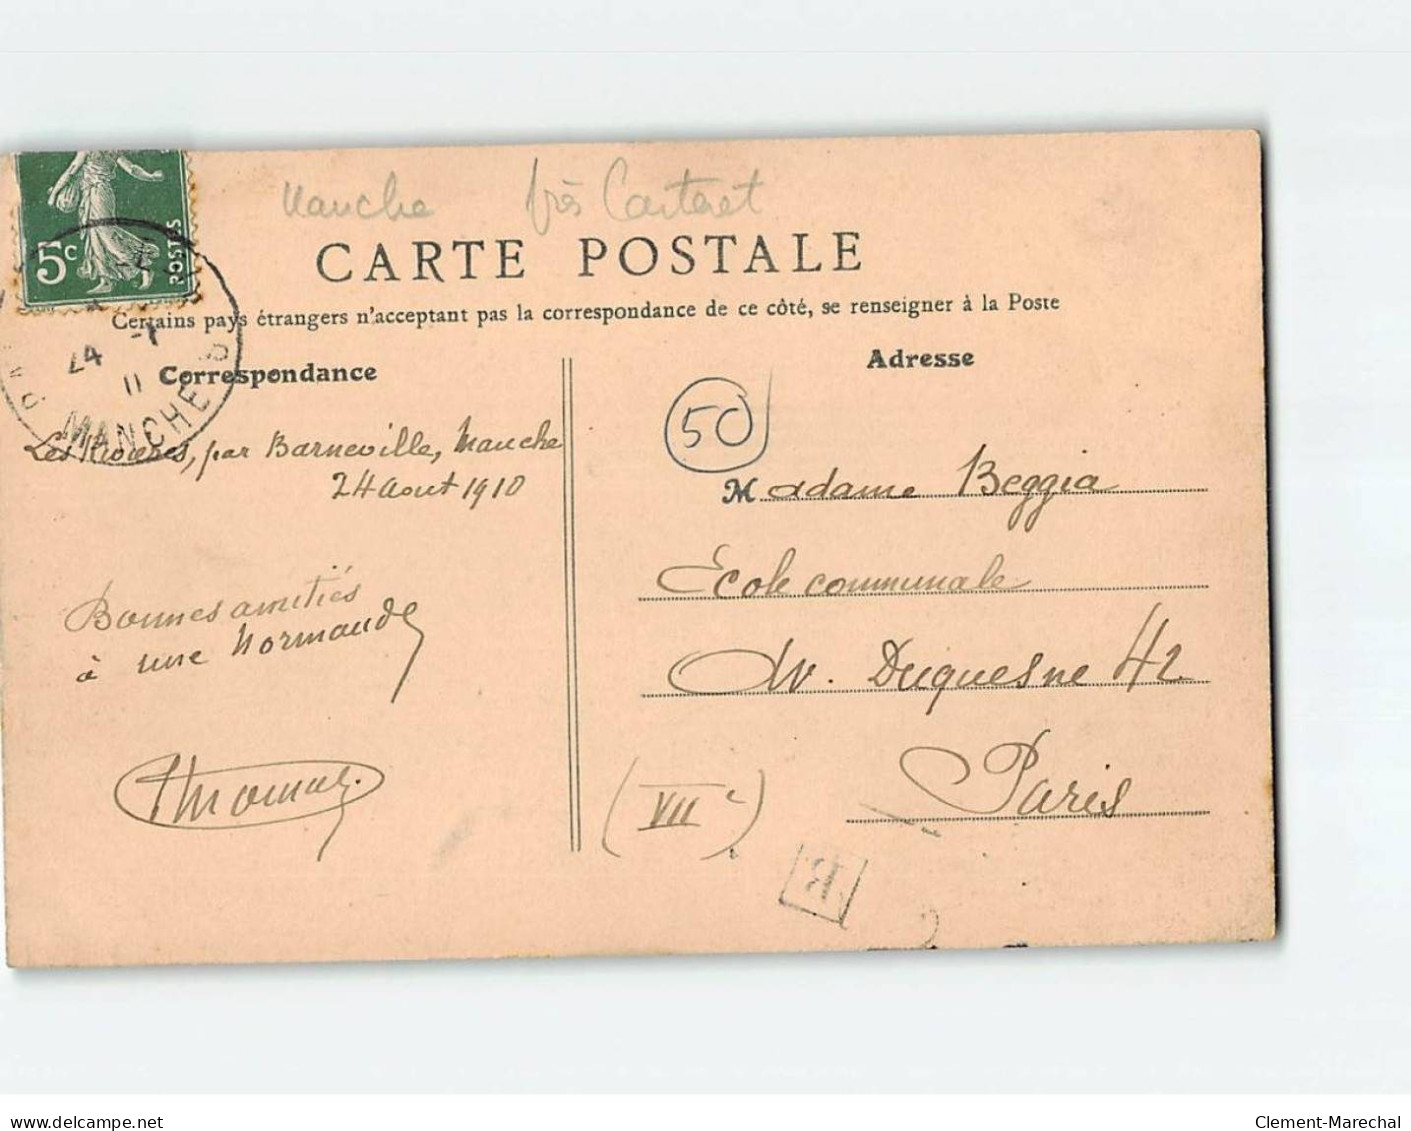 Manche près Carteret
5c
POSTES
CARTE POSTALE
Certains pays étrangers n'acceptant pas la correspondance de ce côté, se renseigner à la Poste
Correspondance
Adresse
24 -
11
MANCHE
50
Les Rivières, par Barneville, Manche
24 Aout 1910
Madame Beggia
Ecole communale
Av. Duquesne 42
Paris
(VIIe)
Bonnes amitiés
à une Normande
R
www.delcampe.net
Clement-Marechal